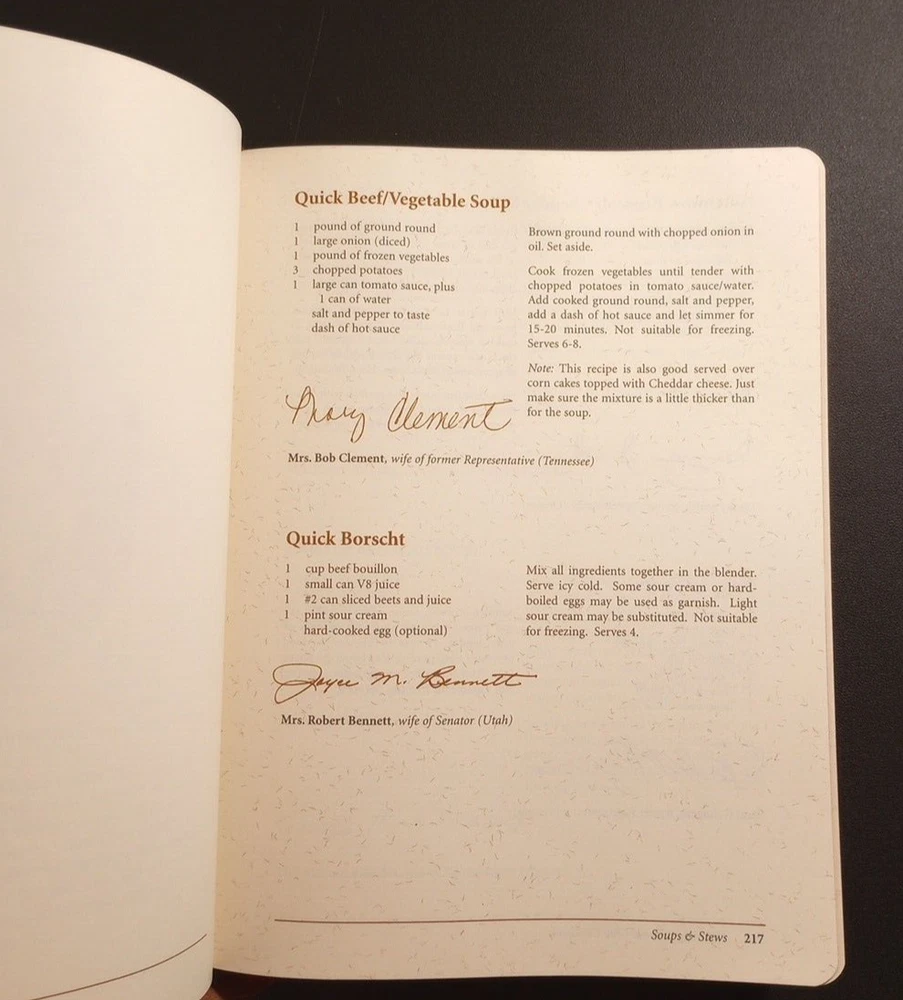 Quick Beef/Vegetable Soup
1 pound of ground round
1 large onion (diced)
1 pound of frozen vegetables
3 chopped potatoes
1 large can tomato sauce, plus
1 can of water
salt and pepper to taste
dash of hot sauce
Brown ground round with chopped onion in
oil. Set aside.
Cook frozen vegetables until tender with
chopped potatoes in tomato sauce/water.
Add cooked ground round, salt and pepper,
add a dash of hot sauce and let simmer for
15-20 minutes. Not suitable for freezing.
Serves 6-8.
Note: This recipe is also good served over
corn cakes topped with Cheddar cheese. Just
make sure the mixture is a little thicker than
for the soup.
Mary Clement
Mrs. Bob Clement, wife of former Representative (Tennessee)
Quick Borscht
1 cup beef bouillon
1 small can V8 juice
1 #2 can sliced beets and juice
1 pint sour cream
hard-cooked egg (optional)
Mix all ingredients together in the blender.
Serve icy cold. Some sour cream or hard-
boiled eggs may be used as garnish. Light
sour cream may be substituted. Not suitable
for freezing. Serves 4.
Joyce M. Bennett
Mrs. Robert Bennett, wife of Senator (Utah)
Soups & Stews 217